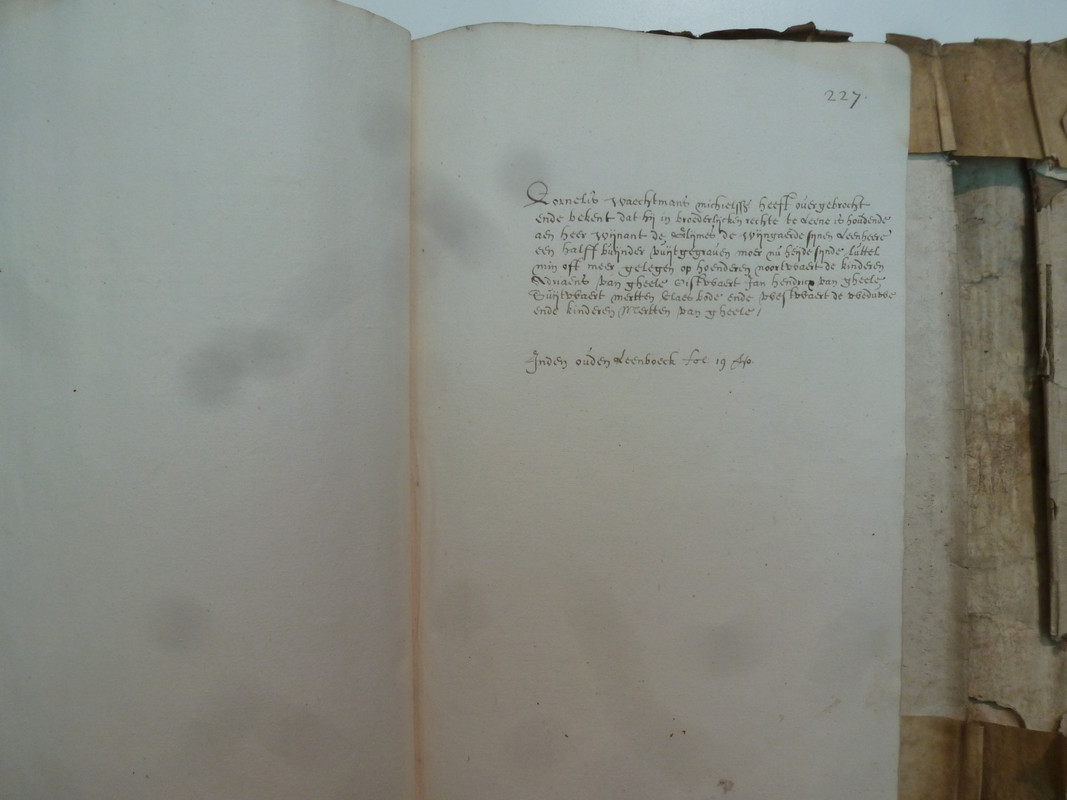 227.
Cornelis Waechtmans michielssz heeft overgebrocht
ende bekent dat hij in broederlijcken rechte te Leene is houdende
aen heer wijnant de, de wijngaerde sijnen Leenheere
een halff buijnder vuijtgegraven moer nu heijde sijnde luttel
min oft meer gelegen op hoenderen noortwaert de kinderen
Adriaens van gheele Oistwaert Jan Hendricx van gheele
Suijtwaert mertten Claes bode ende westwaert de weduwe
ende kinderen Mertten van gheele /
Inden ouden Leenboeck foe. 19